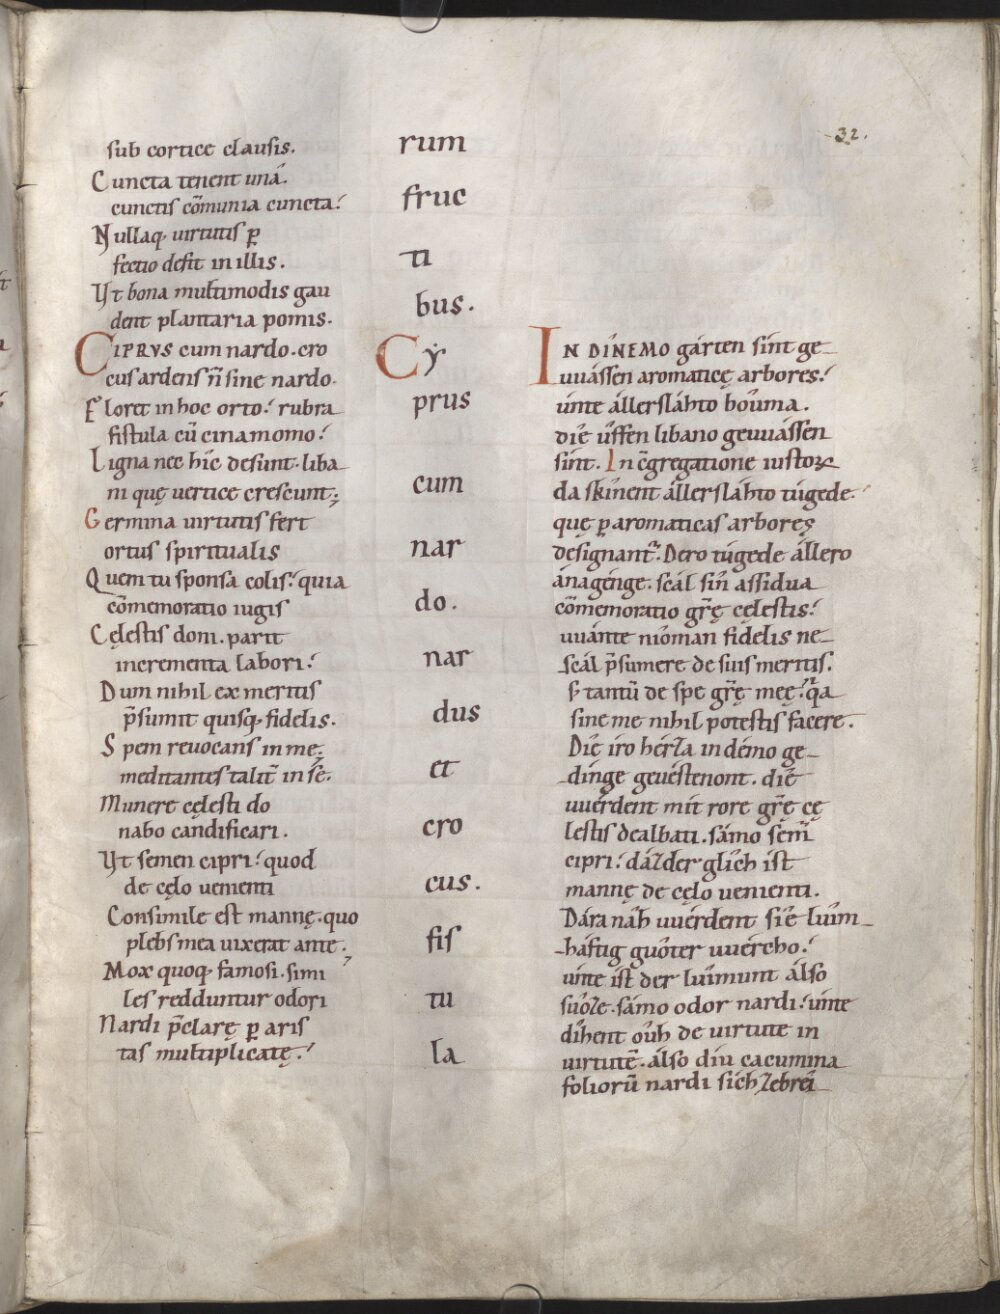 32.
sub cortice clausis.
Cuncta tenent uná.
cunctis cōmunia cuncta.
Nullaq· uirtutis ꝑ
fectio defit in illis.
Vt bona multimodis gau
dent plantaria pomis.
CIPRVS cum nardo. cro
cus ardens n̄ sine nardo.
Floret in hoc orto. rubra
fistula cū cinamomo.
Ligna nec hic desunt. liba
ni quę uertice crescunt;
Germina uirtutis fert
ortus spiritualis
Quem tu sponsa colis. quia
cōmemoratio iugis
Cęlestis doni. parit
incrementa labori.
Dum nihil ex meritis
p̄sumit quisq· fidelis.
Spem reuocans in me.
meditantes talit̄ in sé.
Munere cęlesti do
nabo candificari.
Vt semen cipri. quod
de cęlo uenienti
Consimile est mannę. quo
plebs mea uixerat ante.
Mox quoq· famosi. simi
les redduntur odori
Nardi p̄clarę ꝑ aris
tas multiplicatę.
rum
fruc
ti
bus.
Cẏ
prus
cum
nar
do.
nar
dus
et
cro
cus.
fis
tu
la
IN DÍNEMO gárten sint ge
uuássen aromaticę arbores.
únte állerslâhto boûma.
diê ûffen libano geuuássen
sint. In c̄gregatione iustoꝝ
da skînent állerslâhto túgede.
quę ꝑ aromaticas arbores
designant᷑. Dero túgede állero
ánagénge. scál sîn assidua
cōmemoratio gr̄ę cęlestis.
uuánte niôman fidelis ne
scál p̄sumere de suis meritis.
s· tantū de spe gr̄ę meę. q̇a
sine me nihil potestis facere.
Diê íro hérza in démo ge
dinge geuéstenont. diê
uuérdent mit rore gr̄ę cę
lestis dealbati. sámo sem̄
cipri. dáz der glîch ist
mannę de cęlo uenienti.
Dára nâh uuérdent siê luîm
háftig guôter uuércho.
únte ist der luîmunt álso
suôze. sámo odor nardi. únte
dîhent oûh de uirtute in
uirtutē. álso diu cacumina
foliorū nardi sich zebreî